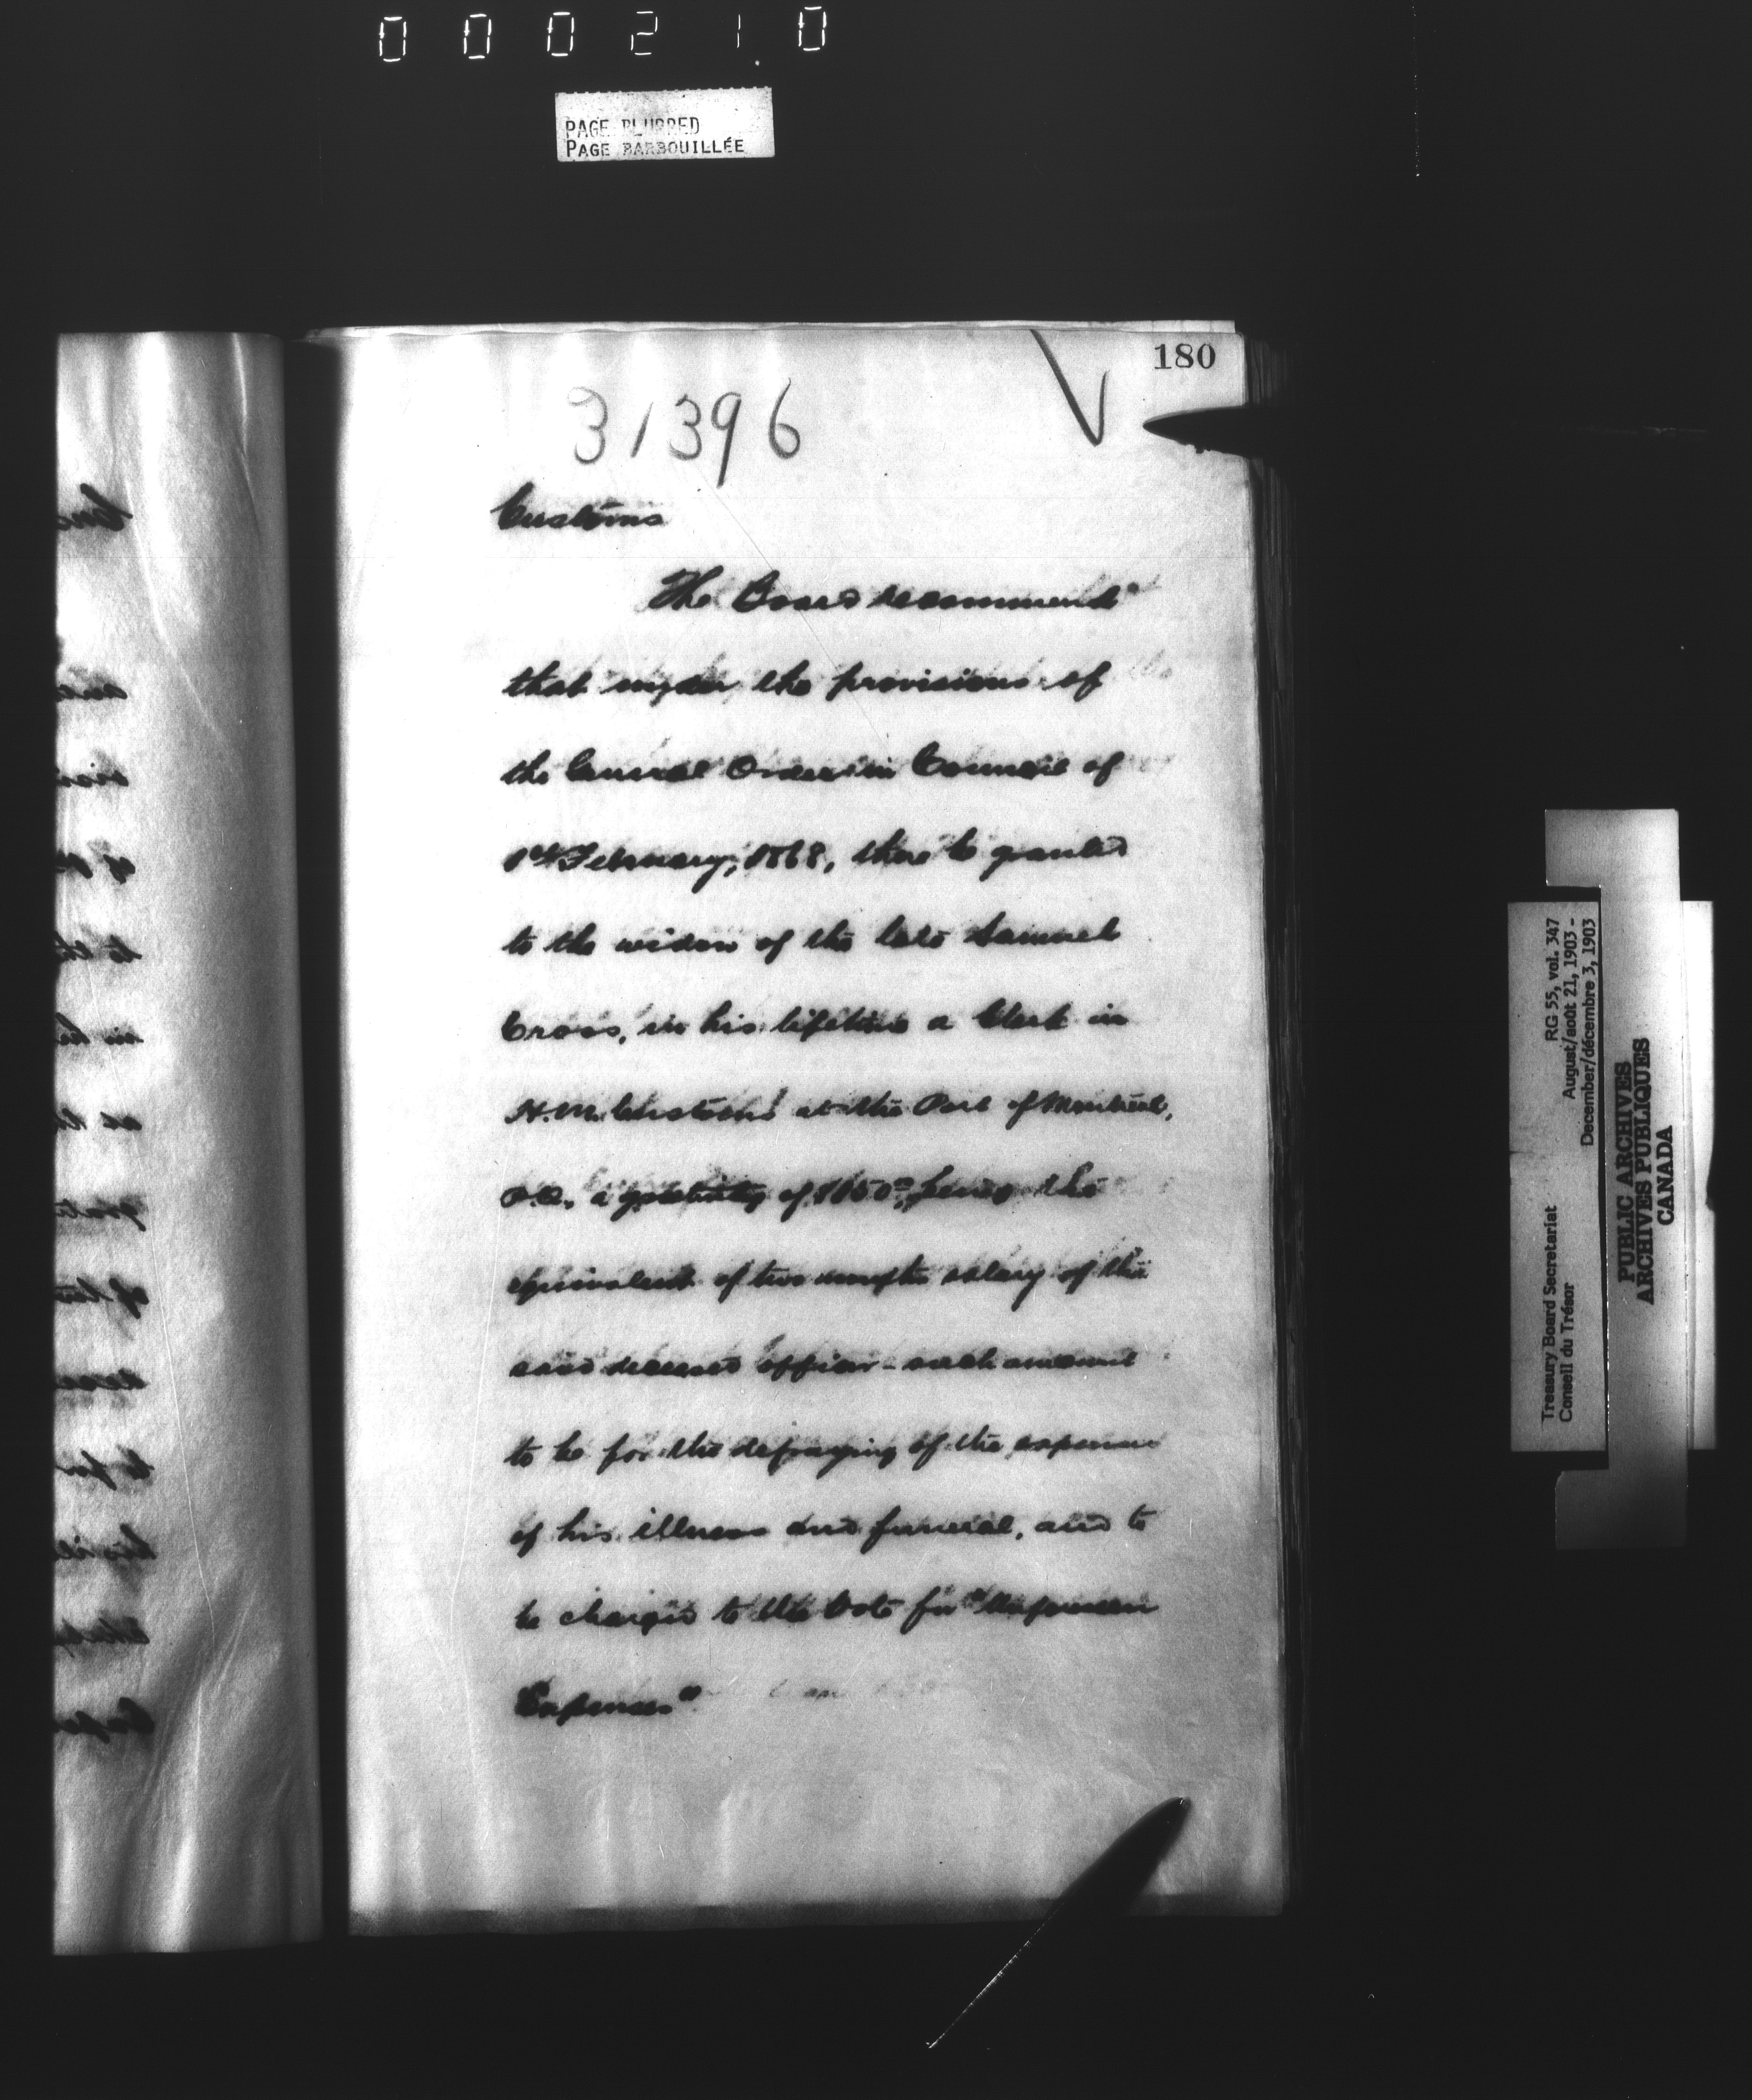 0 0 0 2 1 0
PAGE BLURRED
PAGE BARBOUILLÉE
180
31396
Customs
The Board recommend
that under the provisions of
the General Order in Council of
1st February, 1868, there be granted
to the widow of the late Samuel
Cross, in his lifetime a Clerk in
H.M. Customs at the Port of Montreal,
P.Q., a gratuity of being the
equivalent of two months salary of the
said deceased officer - such amount
to be for the defraying of the expenses
of his illness and funeral, and to
be charged to the Vote for "Unforeseen
Expenses"
Treasury Board Secretariat RG 55, vol. 347
Conseil du Trésor August/août 21, 1903 -
December/décembre 3, 1903
PUBLIC ARCHIVES
ARCHIVES PUBLIQUES
CANADA